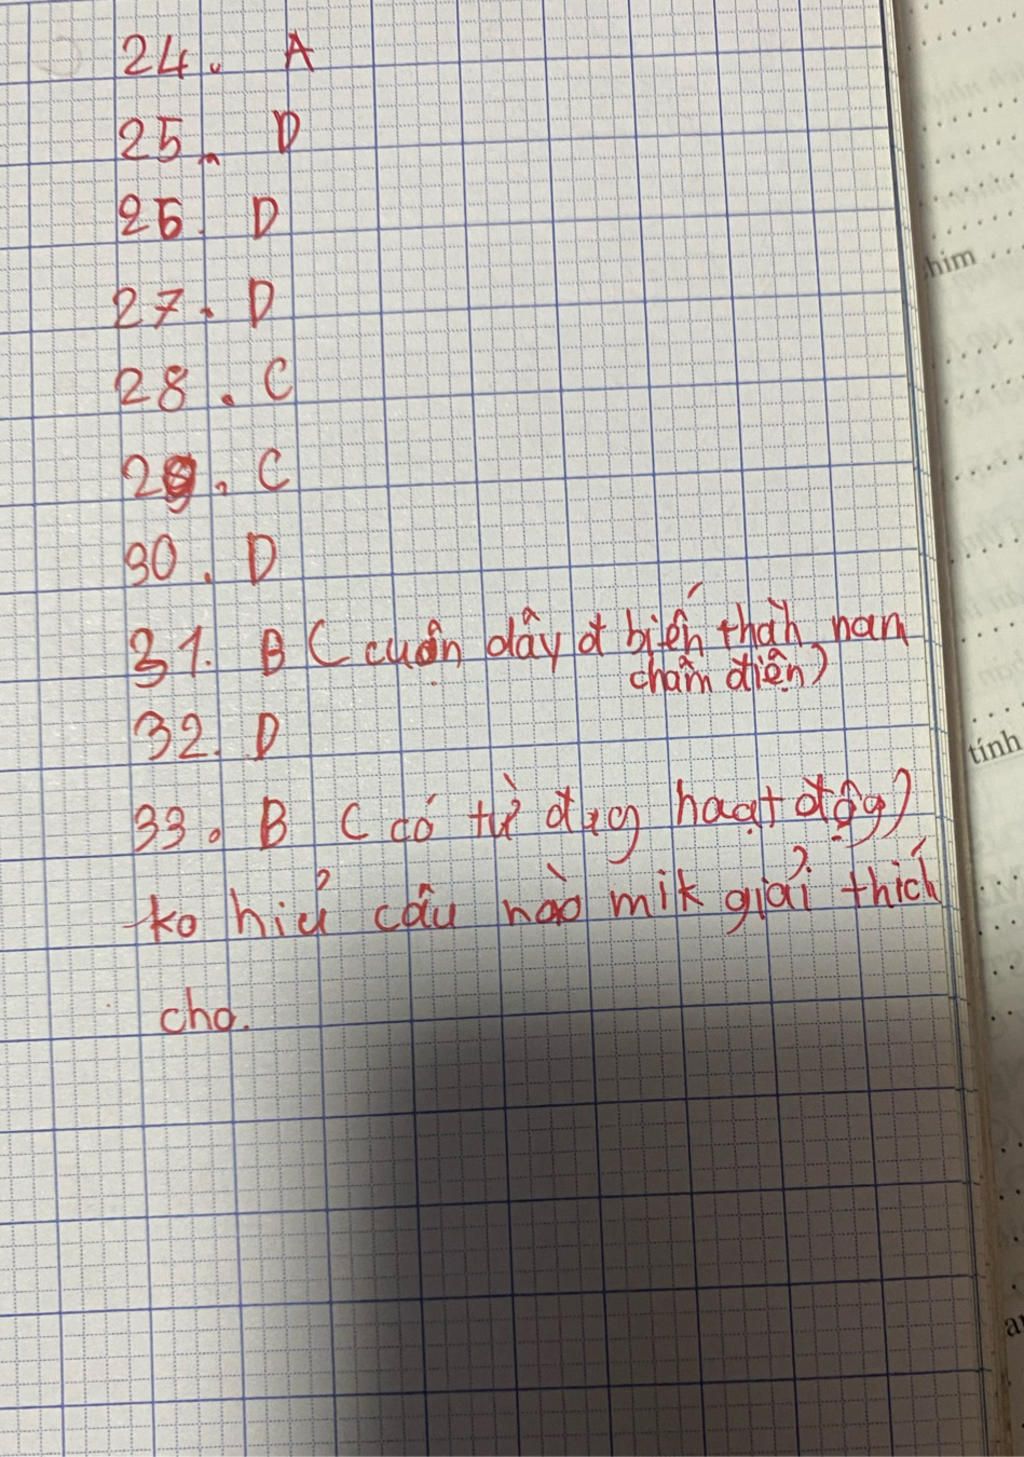 24. A
25. D
26. D
27. D
28. C
29. C
30. D
31. B (cuộn dây đ biến thàh nam
châm điện)
32. D
33. B (có từ dụg hoạt độg)
ko hiủ câu nào mik giải thích
cho.
him
tính